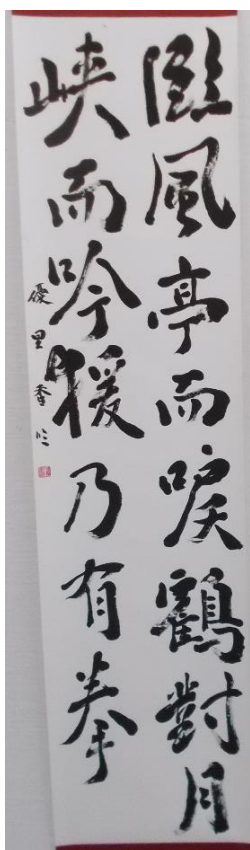 臨風亭而唳鶴對月
峽而吟猨乃有拳
優里香臨